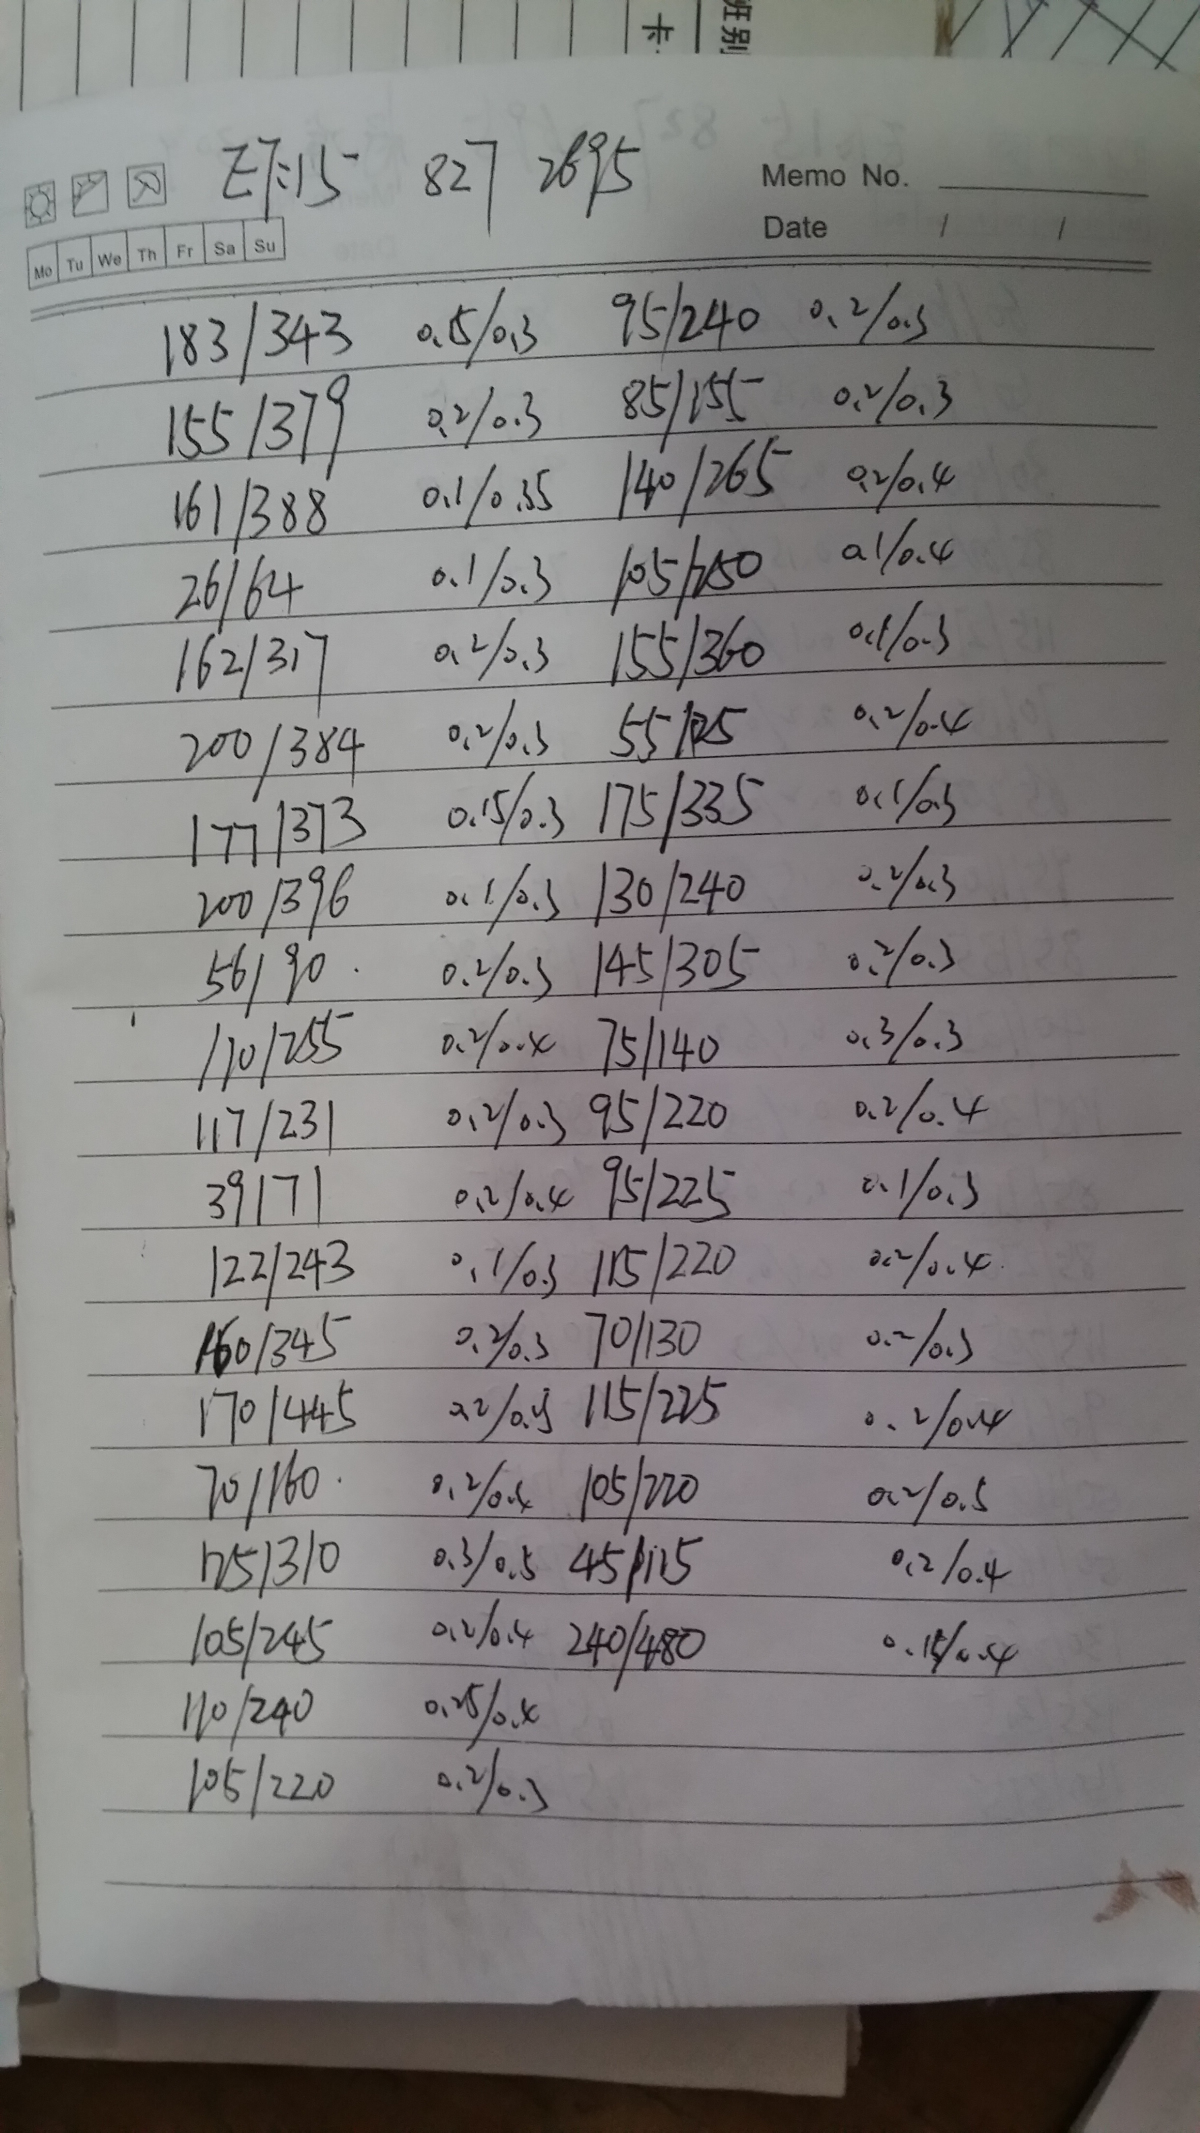 班别
卡
E7:15 827 2695
Memo No.
Date / /
Mo Tu We Th Fr Sa Su
183/343 0.15/0.3 95/240 0.2/0.3
155/379 0.2/0.3 85/155 0.2/0.3
161/388 0.1/0.35 140/265 0.2/0.4
26/64 0.1/0.3 105/250 0.1/0.4
162/317 0.2/0.3 155/360 0.1/0.3
200/384 0.2/0.3 55/125 0.2/0.4
177/373 0.15/0.3 175/335 0.1/0.3
200/396 0.1/0.3 130/240 0.2/0.3
56/90 0.2/0.3 145/305 0.2/0.3
110/255 0.2/0.4 75/140 0.3/0.3
117/231 0.2/0.3 95/220 0.2/0.4
39/71 0.2/0.4 95/225 0.1/0.3
122/243 0.1/0.3 115/220 0.2/0.4
160/345 0.2/0.3 70/130 0.2/0.3
170/445 115/225 0.2/0.4
70/160 0.2/0.4 105/220 0.2/0.5
175/310 0.3/0.5 45/115 0.2/0.4
105/245 0.2/0.4 240/480 0.15/0.4
110/240 0.25/0.4
105/220 0.2/0.3